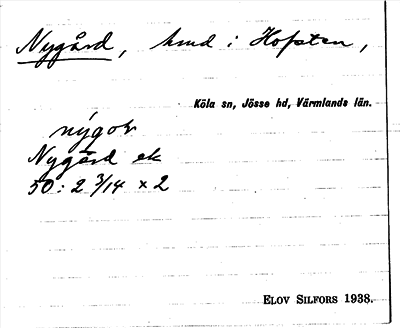 Nygård, hmd i Hofsten,
Köla sn, Jösse hd, Värmlands län.
nýgoṙ
Nygård ek
50: 2 3/14 x 2
ELOV SILFORS 1938.